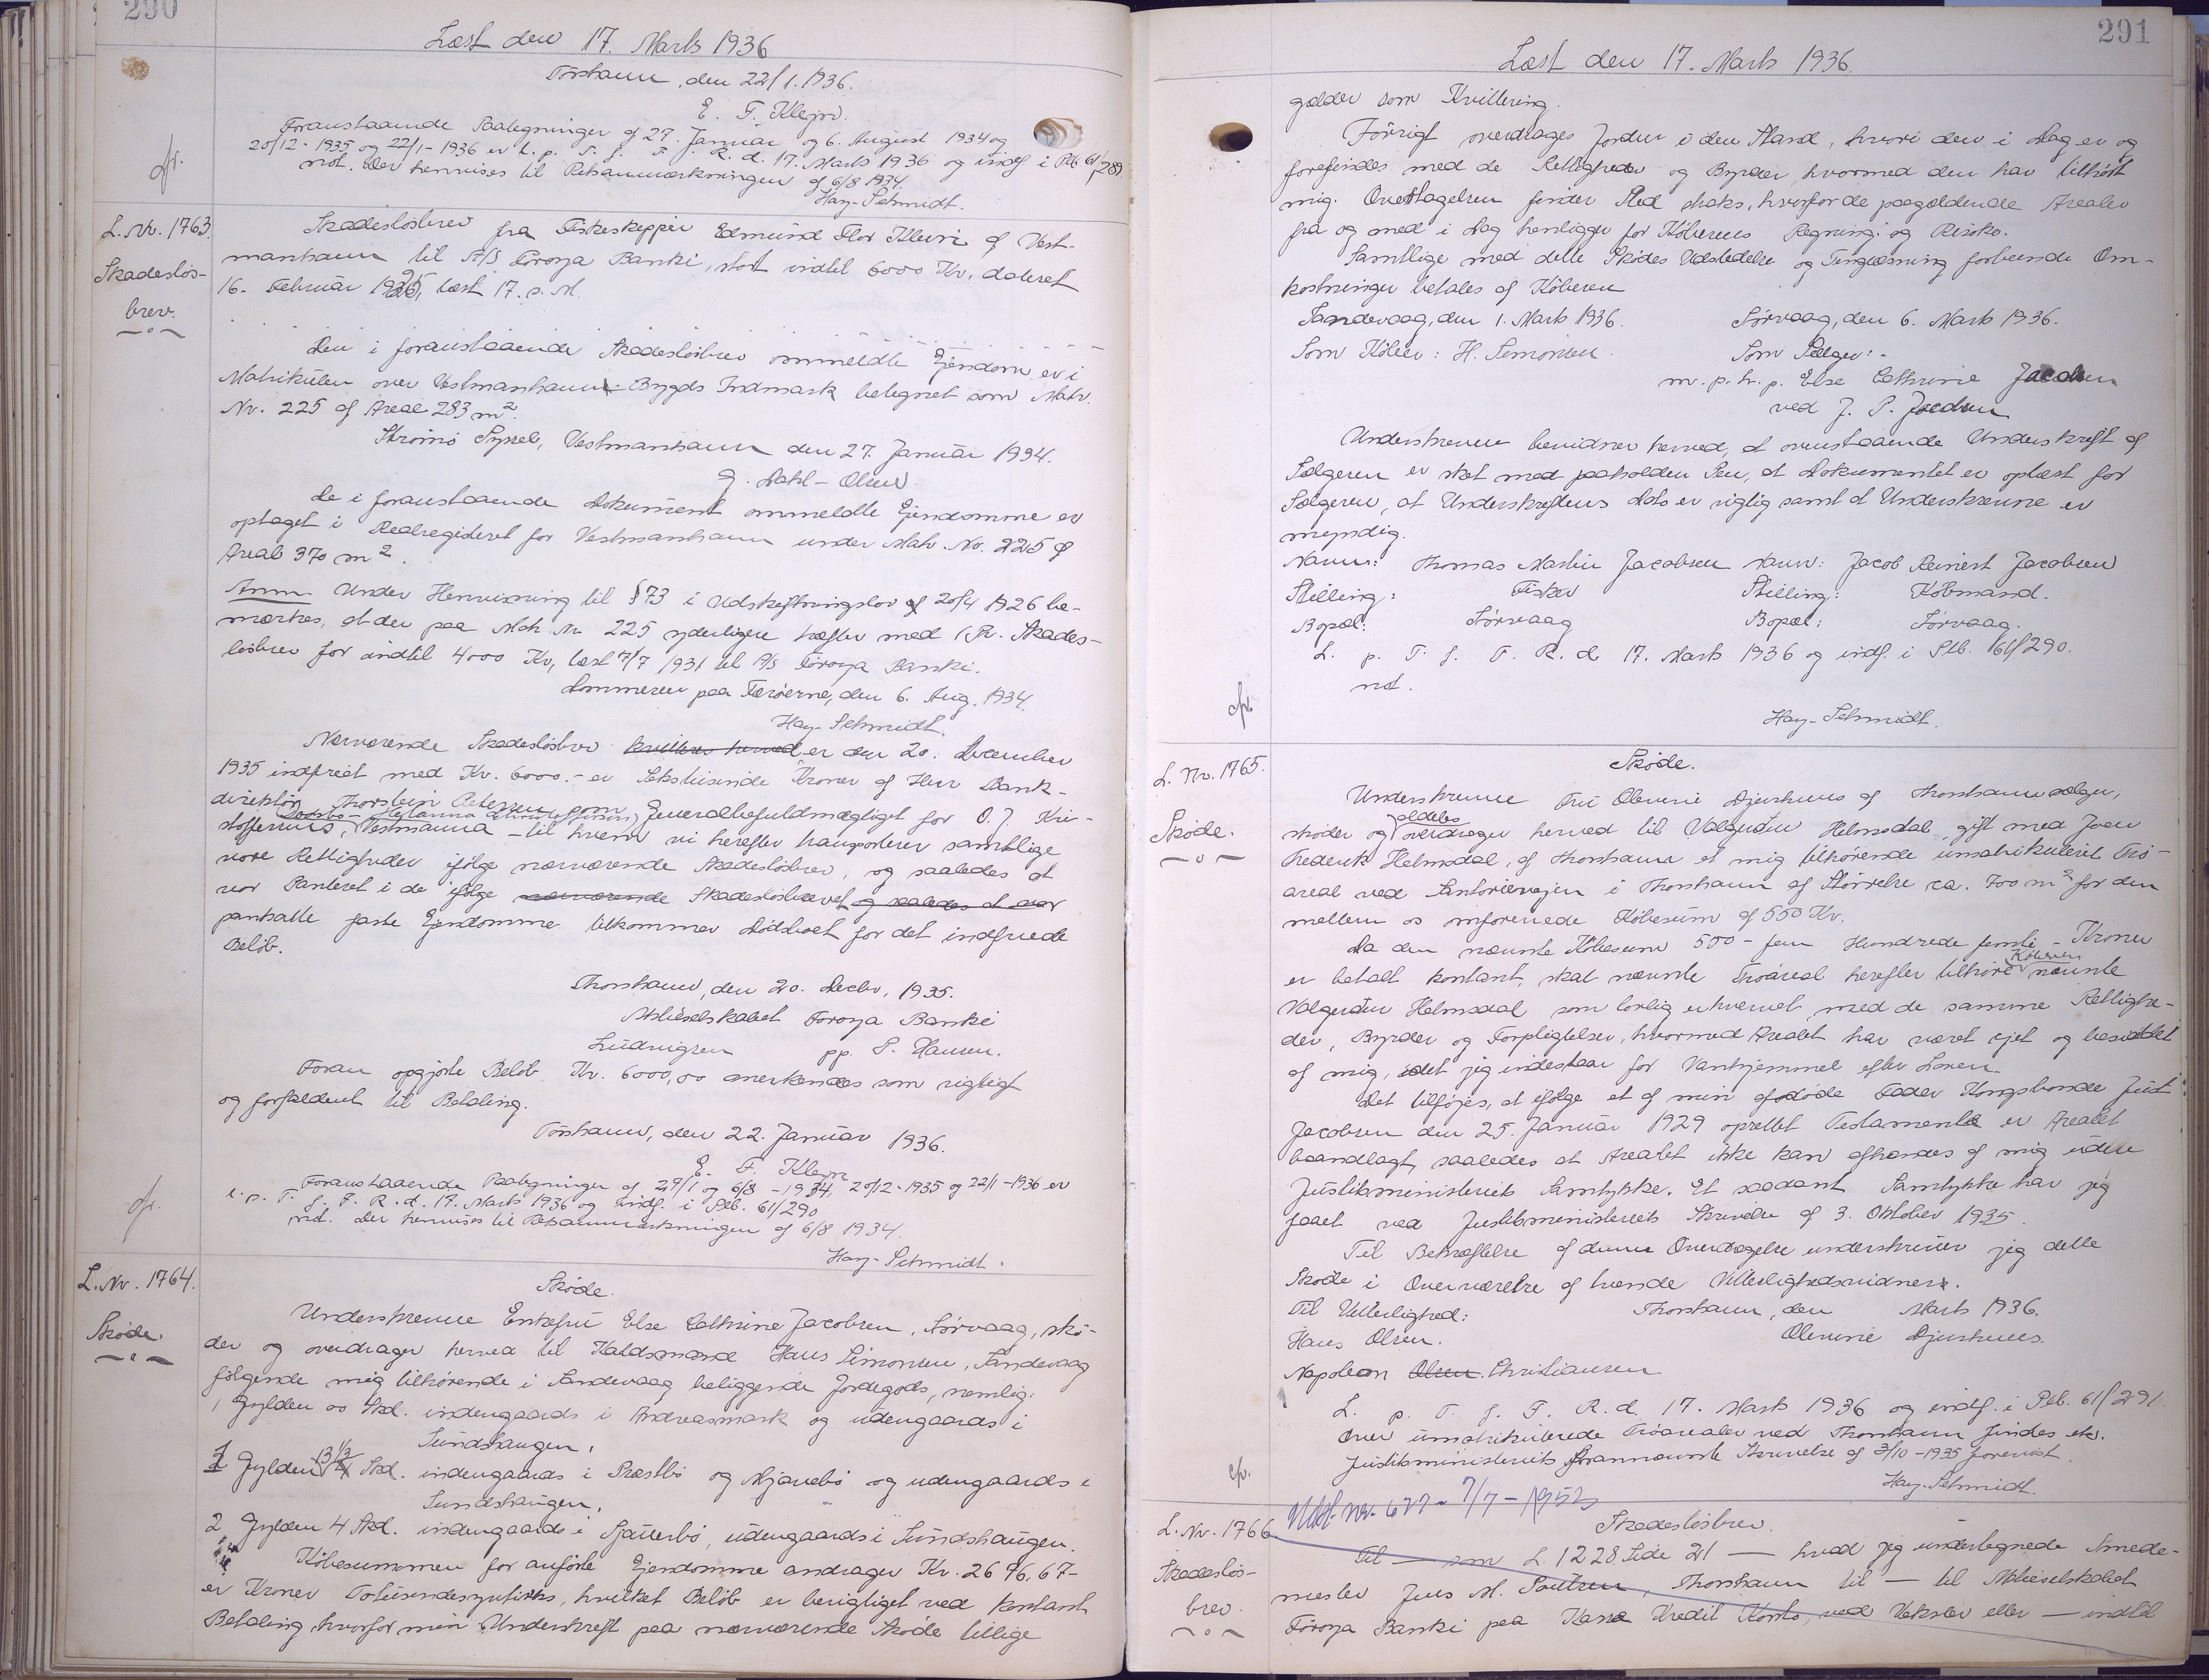 290
Læst den 17. Marts 1936
Tórshavn, den 22/1. 1936.
E. F. Klejn.
Foranstaaende Paategninger af 27. Januar og 6. August 1934 og
20/12 - 1935 og 22/1 - 1936 er l. p. T. f. F. R. d. 17. Marts 1936 og indf. i Plb. 61/289.
not. Der henvises til Retsanmærkningen af 6/8 1934.
Hay-Schmidt.
L. Nr. 1763.
Skadesløs-
brev.
Skadesløsbrev fra Fiskeskipper Edmund Flor Klein af Vest-
manhavn til A/S Føroya Banki, stort indtil 6000 Kr., dateret
16. Februar 1925, læst 17. s. M.
Den i foranstaaende Skadesløsbrev ommeldte Ejendom er i
Matrikulen over Vestmanhavn Bygds Indmark betegnet som Matr.
Nr. 225 af Areal 283 m².
Strømø Syssel, Vestmanhavn den 27. Januar 1934.
J. Dahl-Olsen.
De i foranstaaende Dokument ommeldte Ejendomme er
optaget i Realregisteret for Vestmanhavn under Matr. Nr. 225 af
Areal 370 m².
Anm. Under Henvisning til § 73 i Udskiftningslov af 20/4 1926 be-
mærkes, at der paa Matr. Nr. 225 yderligere hæfter med 1. Pr. Skades-
løsbrev for indtil 4000 Kr, læst 7/7 1931 til A/S Føroya Banki.
Dommeren paa Færøerne, den 6. Aug. 1934.
Hay-Schmidt.
Nærværende Skadesløsbrev kvitteres herved er den 20. December
1935 indfriet med Kr. 6000.- er Sekstusinde Kroner af Herr Bank-
direktør Thorstein Petersen som Generalbefuldmægtiget for O. J. Kri-
stoffersens, Vestmanna - til hvem vi herefter transporterer samtlige
vore Rettigheder ifølge nærværende Skadesløsbrev, og saaledes at
vor Panteret i de ifølge nærværende Skadesløsbrevet og saaledes at vor
pantsatte faste Ejendomme tilkommer Dødsboet for det indfriede
Beløb.
Thorshavn, den 20. Decbr. 1935.
Aktieselskabet Føroya Banki
Ludvigsen pp. P. Hansen.
Foran opgjorte Beløb Kr. 6000,00 anerkendes som rigtigt
og forfaldent til Betaling.
Tórshavn, den 22. Januar 1936.
E. F. Klejn
Foranstaaende Paategninger af 27/1 og 6/8 - 1934, 20/12 - 1935 og 22/1 - 1936 er
l. p. T. f. F. R. d. 17. Marts 1936 og indf. i Plb. 61/290
not. Der henvises til Retsanmærkningen af 6/8 1934.
Hay-Schmidt.
L. Nr. 1764.
Skøde.
Skøde.
Underskrevne Enkefru Else Cathrine Jacobsen, Sørvaag, skø-
der og overdrager herved til Kaldsmand Hans Simonsen, Sandevaag
følgende mig tilhørende i Sandevaag beliggende Jordegods, nemlig:
1 Gylden 00 Skd. indengaards i Andreasmark og udengaards i
Sundshaugen,
1 Gylden 13 1/3 Skd. indengaards i Præstbø og Mjanebø og udengaards i
Sundshaugen,
2 Gylden 4 Skd. indengaards i Sjaiterbø, udengaards i Sundshaugen.
Købesummen for anførte Ejendomme andrager Kr. 2676,67-
er Kroner Totusendesyvtiseks, hvilket Beløb er berigtiget ved kontant
Betaling, hvorfor min Underskrift paa nærværende Skøde tillige
291
Læst den 17. Marts 1936.
gælder som Kvittering.
Forrigt overdrages Jorden i den Stand, hvori den i Dag er og
forefindes med de Rettigheder og Byrder, hvormed den har tilhørt
mig. Overtagelsen finder Sted straks, hvorfor de paagældende Arealer
fra og med i Dag henligger for Køberens Regning og Risiko.
Samtlige med dette Skødes Udstedelse og Tinglæsning forbundne Om-
kostninger betales af Køberen
Sandevaag, den 1. Marts 1936. Sørvaag, den 6. Marts 1936.
Som Køber: H. Simonsen. Som Sælger:-
m. p. h. p. Else Cathrine Jacobsen
ved J. P. Jacobsen
Underskrevne bevidner herved, at ovenstaaende Underskrift af
Sælgeren er sket med paaholden Pen, at Dokumentet er oplæst for
Sælgeren, at Underskriftens Dato er rigtig samt at Underskriverne er
myndig.
Navn: Thomas Martin Jacobsen Navn: Jacob Reinert Jacobsen
Stilling: Fisker Stilling: Købmand.
Bopæl: Sørvaag Bopæl: Sørvaag.
L. p. T. f. F. R. d. 17. Marts 1936 og indf. i Plb. 61/290.
not.
Hay-Schmidt.
L. Nr. 1765.
Skøde.
Skøde.
Underskrevne Fru Olevine Djurhuus af Thorshavn sælger,
skøder og aldeles overdrager herved til Valgerður Helmsdal, gift med Joen
Frederik Helmsdal, af Thorshavn et mig tilhørende umatrikuleret Trø-
areal ved Santorievejen i Thorshavn af Størrelse ca. 700 m² for den
mellem os omforenede Købesum af 550 Kr.
Da den nævnte Købesum 550 - fem Hundrede femti - Kroner
er betalt kontant, skal nævnte Trøareal herefter tilhøre Køberen nævnte
Valgerður Helmsdal som lovlig erhvervet med de samme Rettighe-
der, Byrder og Forpligtelser, hvormed Arealet har været ejet og besiddet
af mig, idet jeg indestaar for Vanhjemmel efter Loven.
Det tilføjes, at ifølge et af min afdøde Fader Kongsbonde Just
Jacobsen den 25. Januar 1929 oprettet Testamente er Arealet
baandlagt, saaledes at Arealet ikke kan afhændes af mig uden
Justitsministeriets Samtykke. Et saadant Samtykke har jeg
faaet ved Justitsministeriets Skrivelse af 3. Oktober 1935.
Til Bekræftelse af denne Overdragelse underskriver jeg dette
Skøde i Overværelse af tvende Vitterlighedsvidner.
Til Vitterlighed: Thorshavn, den Marts 1936.
Hans Olsen. Olevine Djurhuus.
Napoleon Olsen. Christiansen
L. p. T. f. F. R. d. 17. Marts 1936 og indf. i Plb. 61/291
Over umatrikulerede Trøarealer ved Thorshavn findes etc.
Justitsministeriets forannævnte Skrivelse af 3/10 - 1935 forevist.
Hay-Schmidt.
L. Nr. 1766
Skadesløs-
brev.
Skadesløsbrev.
Til — som L. 1228 Side 21 — hvad jeg undertegnede Smede-
mester Jens M. Poulsen, Thorshavn til — til Aktieselskabet
Føroya Banki paa Kasse Kredit Konto, ved Veksler eller — indtil